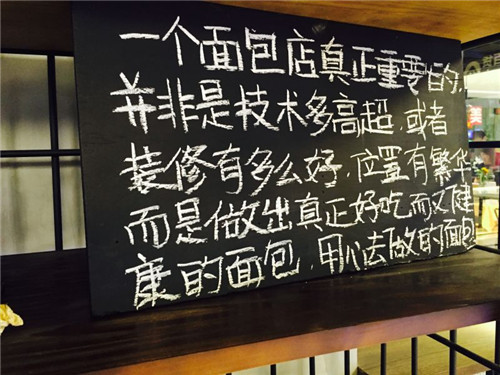 一个面包店真正重要的,
并非是技术多高超,或者
装修有多么好,位置有繁华
而是做出真正好吃而又健
康的面包,用心去做的面包